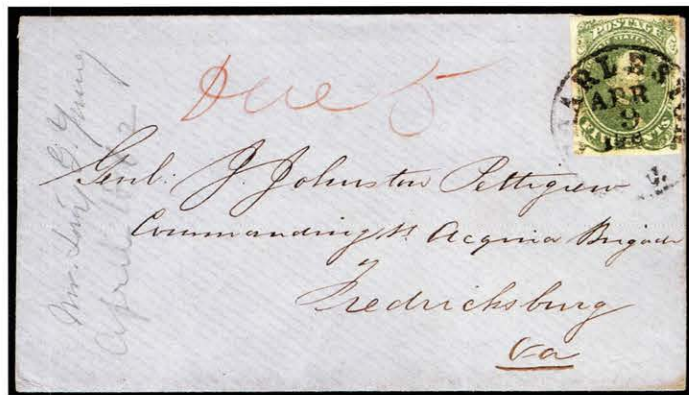 POSTAGE
CHARLESTON
APR
9
Due 5
Genl. J. Johnston Pettigrew
Commanding Acquia Brigade
Fredricksburg
Va
Mrs. G. Young
April